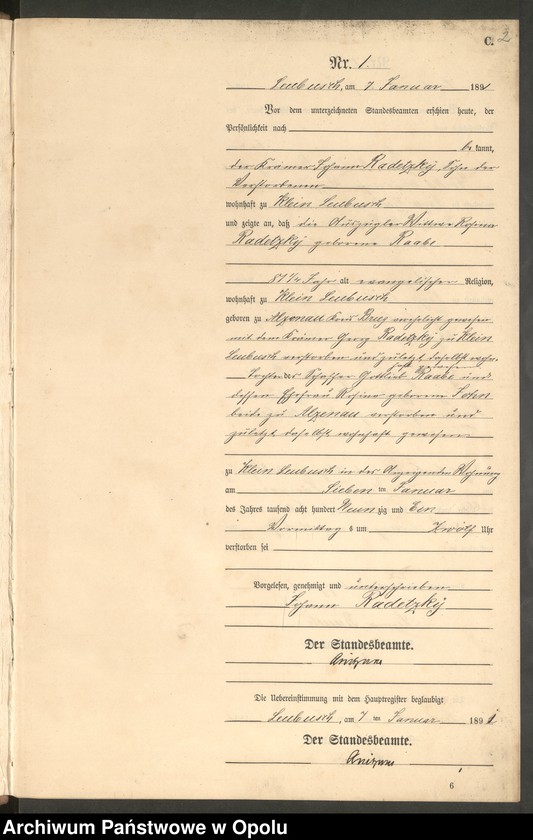 C. 2
Nr. 1.
Leubusch, am 7 Januar 1891
Vor dem unterzeichneten Standesbeamten erschien heute, der
Persönlichkeit nach
be kannt,
der Krämer Johann Radetzky, Sohn der
Verstorbenen
wohnhaft zu Klein Leubusch
und zeigte an, daß die Auszügler Wittwe Rosina
Radetzky geborene Raabe
81 1/4 Jahr alt evangelischer Religion,
wohnhaft zu Klein Leubusch
geboren zu Alzenau Kreis Brieg verehelicht gewesen
mit dem Krämer Georg Radetzky zu Klein
Leubusch verstorben und zuletzt daselbst wohn-
haft gewesen
Tochter des Schaffer Gottlieb Raabe und
dessen Ehefrau Rosina geborene
beide zu Alzenau verstorben und
zuletzt daselbst wohnhaft gewesen
zu Klein Leubusch in des Anzeigenden Wohnung
am Sieben ten Januar
des Jahres tausend acht hundert Neun zig und Ein
Vormittag s um Zwölf Uhr
verstorben sei
Vorgelesen, genehmigt und unterschrieben
Johann Radetzky
Der Standesbeamte.
Die Uebereinstimmung mit dem Hauptregister beglaubigt
Leubusch, am 7 ten Januar 1891
Der Standesbeamte.
6
Archiwum Państwowe w Opolu